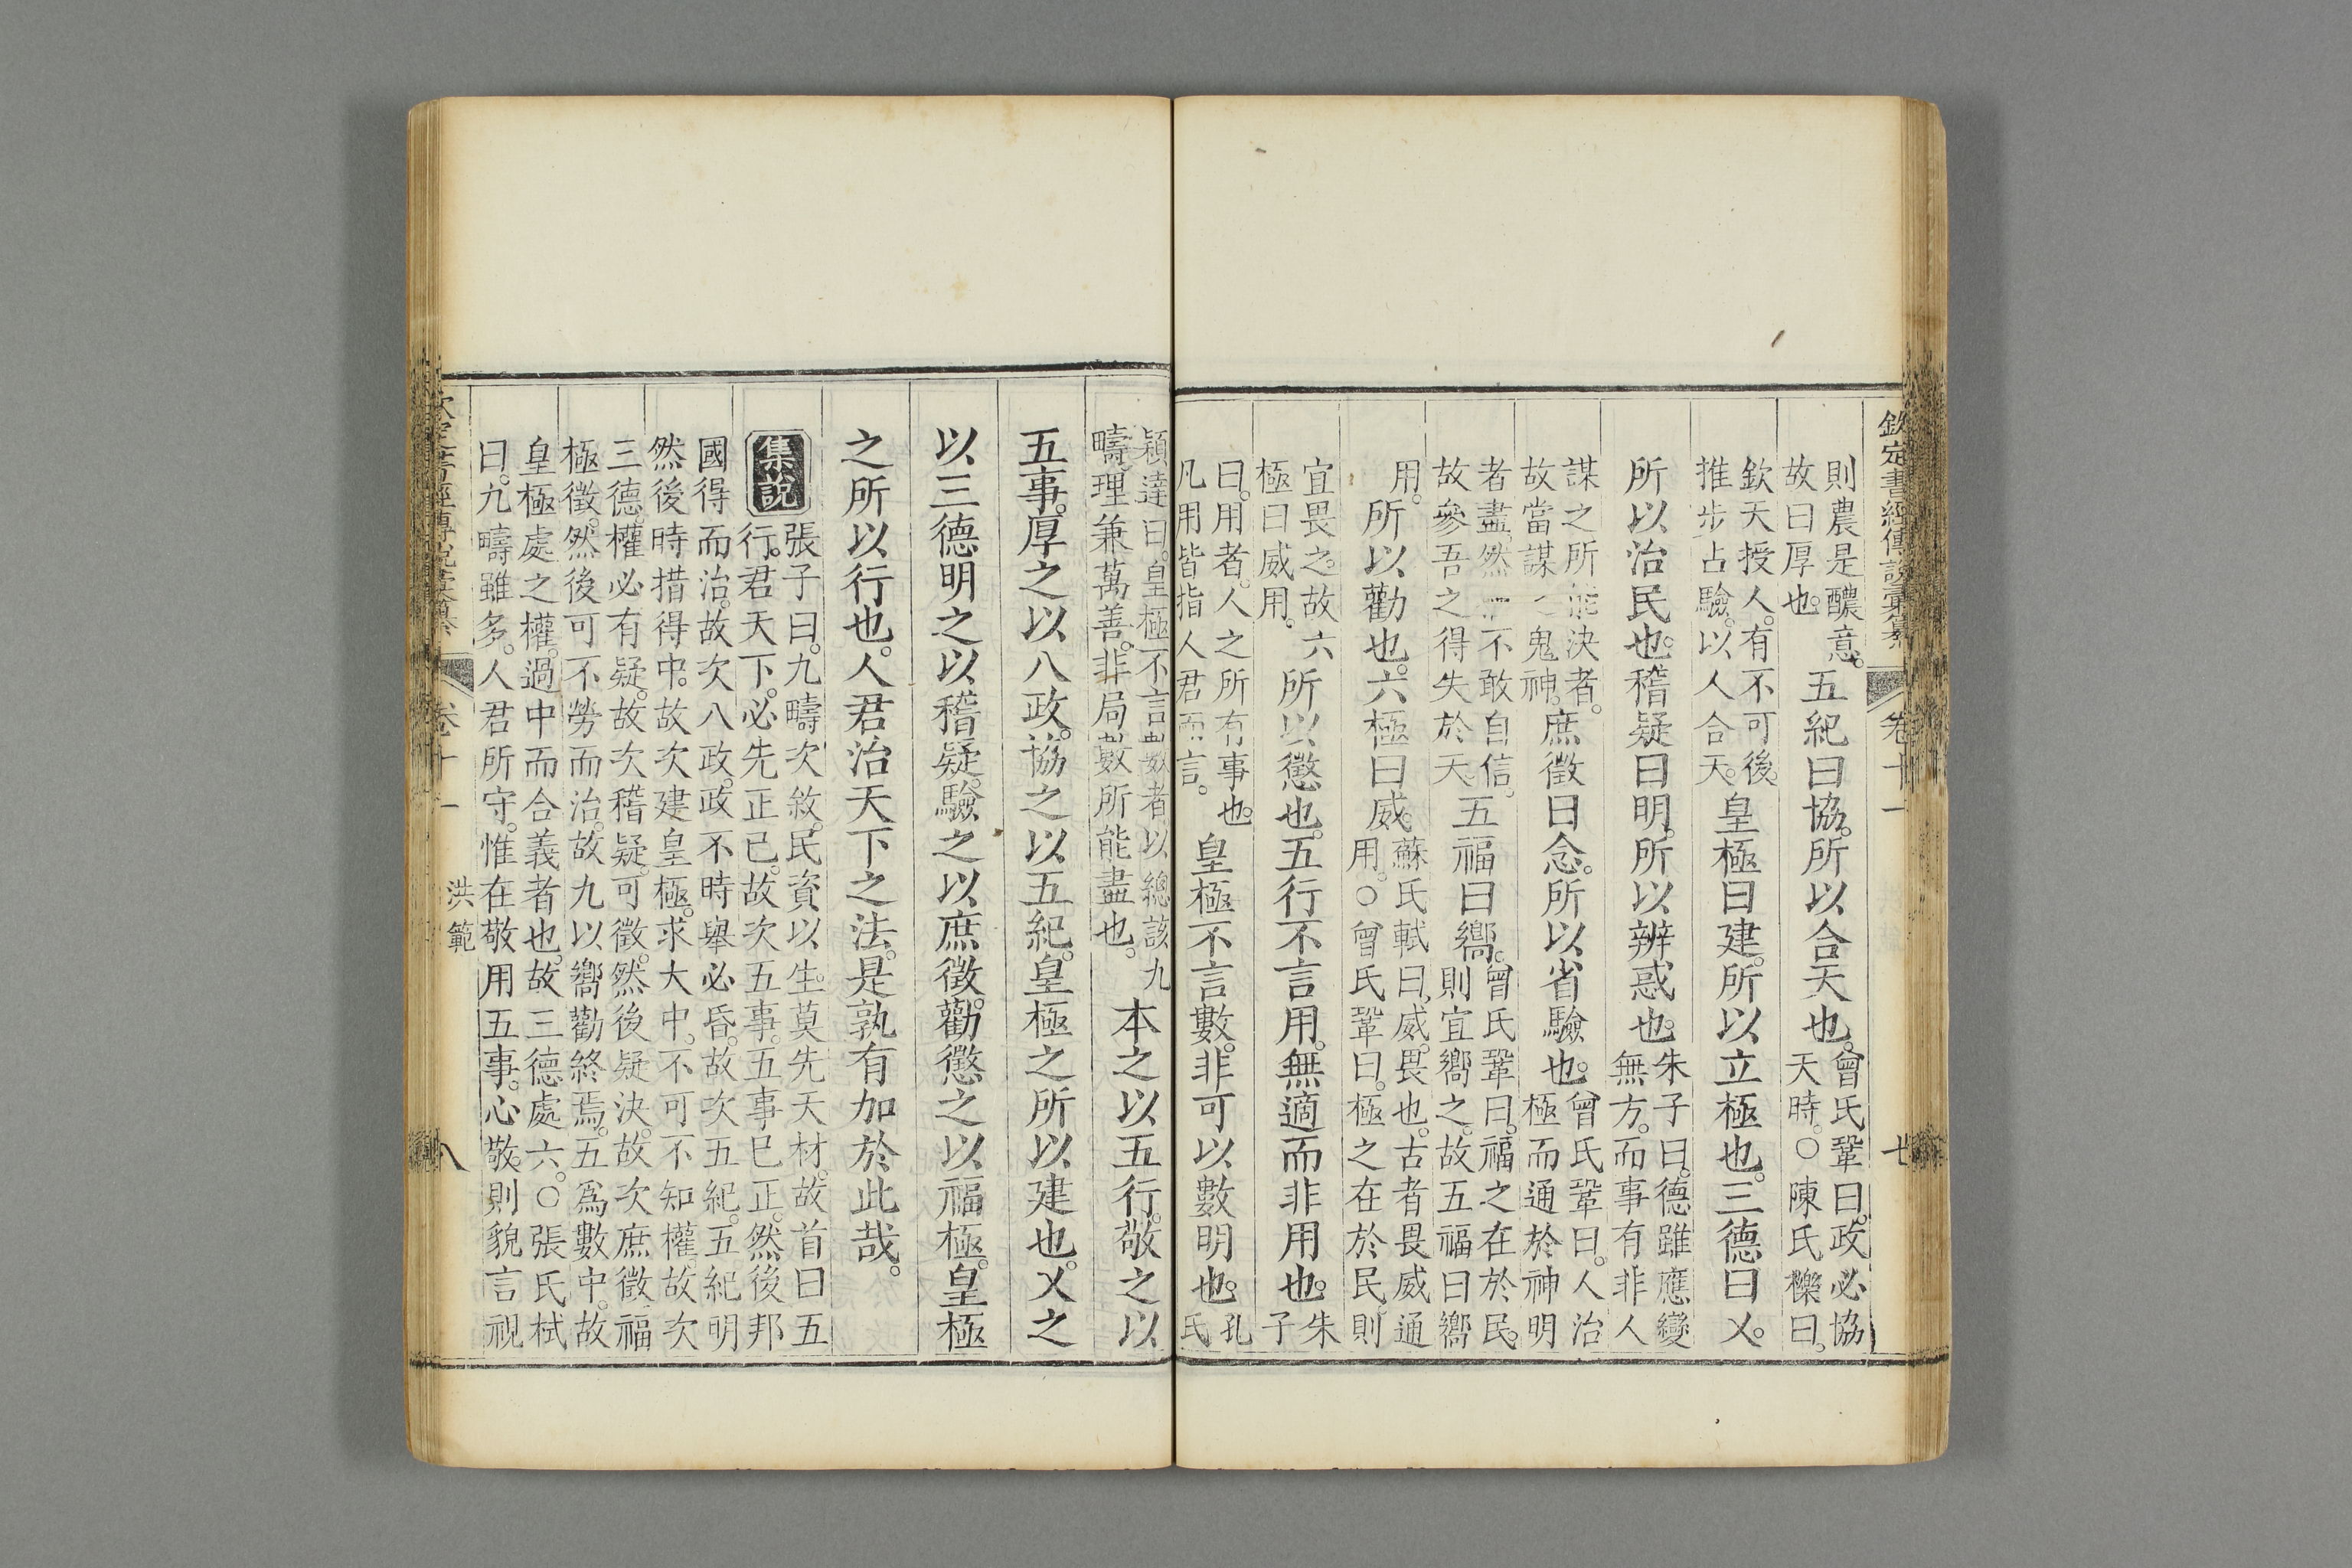 欽定書經傳說彙纂 卷十一 七
則農是醲意。
故曰厚也。
五紀曰協。所以合天也。
曾氏鞏曰。政必協
天時。○陳氏櫟曰。
欽天授人。有不可後。
推步占驗。以人合天。
皇極曰建。所以立極也。三德曰乂。
所以治民也。稽疑曰明。所以辨惑也。
朱子曰。德雖應變
無方。而事有非人
謀之所能決者。
故當謀之鬼神。
庶徵曰念。所以省驗也。
曾氏鞏曰。人治
極而通於神明
者盡。然不敢自信。
故參吾之得失於天。
五福曰嚮。
曾氏鞏曰。福之在於民。
則宜嚮之。故五福曰嚮
用。
所以勸也。六極曰威。
蘇氏軾曰。威。畏也。古者畏威通
用。○曾氏鞏曰。極之在於民。則
宜畏之。故六
極曰威用。
所以懲也。五行不言用。無適而非用也。
朱
子
曰。用者。人之所有事也。
凡用皆指人君而言。
皇極不言數。非可以數明也。
孔
氏
穎達曰。皇極不言數者以總該九
疇。理兼萬善。非局數所能盡也。
本之以五行。敬之以
五事。厚之以八政。協之以五紀。皇極之所以建也。乂之
以三德。明之以稽疑。驗之以庶徵。勸懲之以福極。皇極
之所以行也。人君治天下之法。是孰有加於此哉。
集說
張子曰。九疇次敘。民資以生。莫先天材。故首曰五
行。君天下。必先正己。故次五事。五事已正。然後邦
國得而治。故次八政。政不時舉必昏。故次五紀。五紀明
然後時措得中。故次建皇極。求大中。不可不知權。故次
三德。權必有疑。故次稽疑。可徵。然後疑決。故次庶徵。福
極徵。然後可不勞而治。故九以嚮勸終焉。五爲數中。故
皇極處之。權。過中而合義者也。故三德處六。○張氏栻
曰。九疇雖多。人君所守。惟在敬用五事。心敬。則貌言視
欽定書經傳說彙纂 卷十一 洪範 八